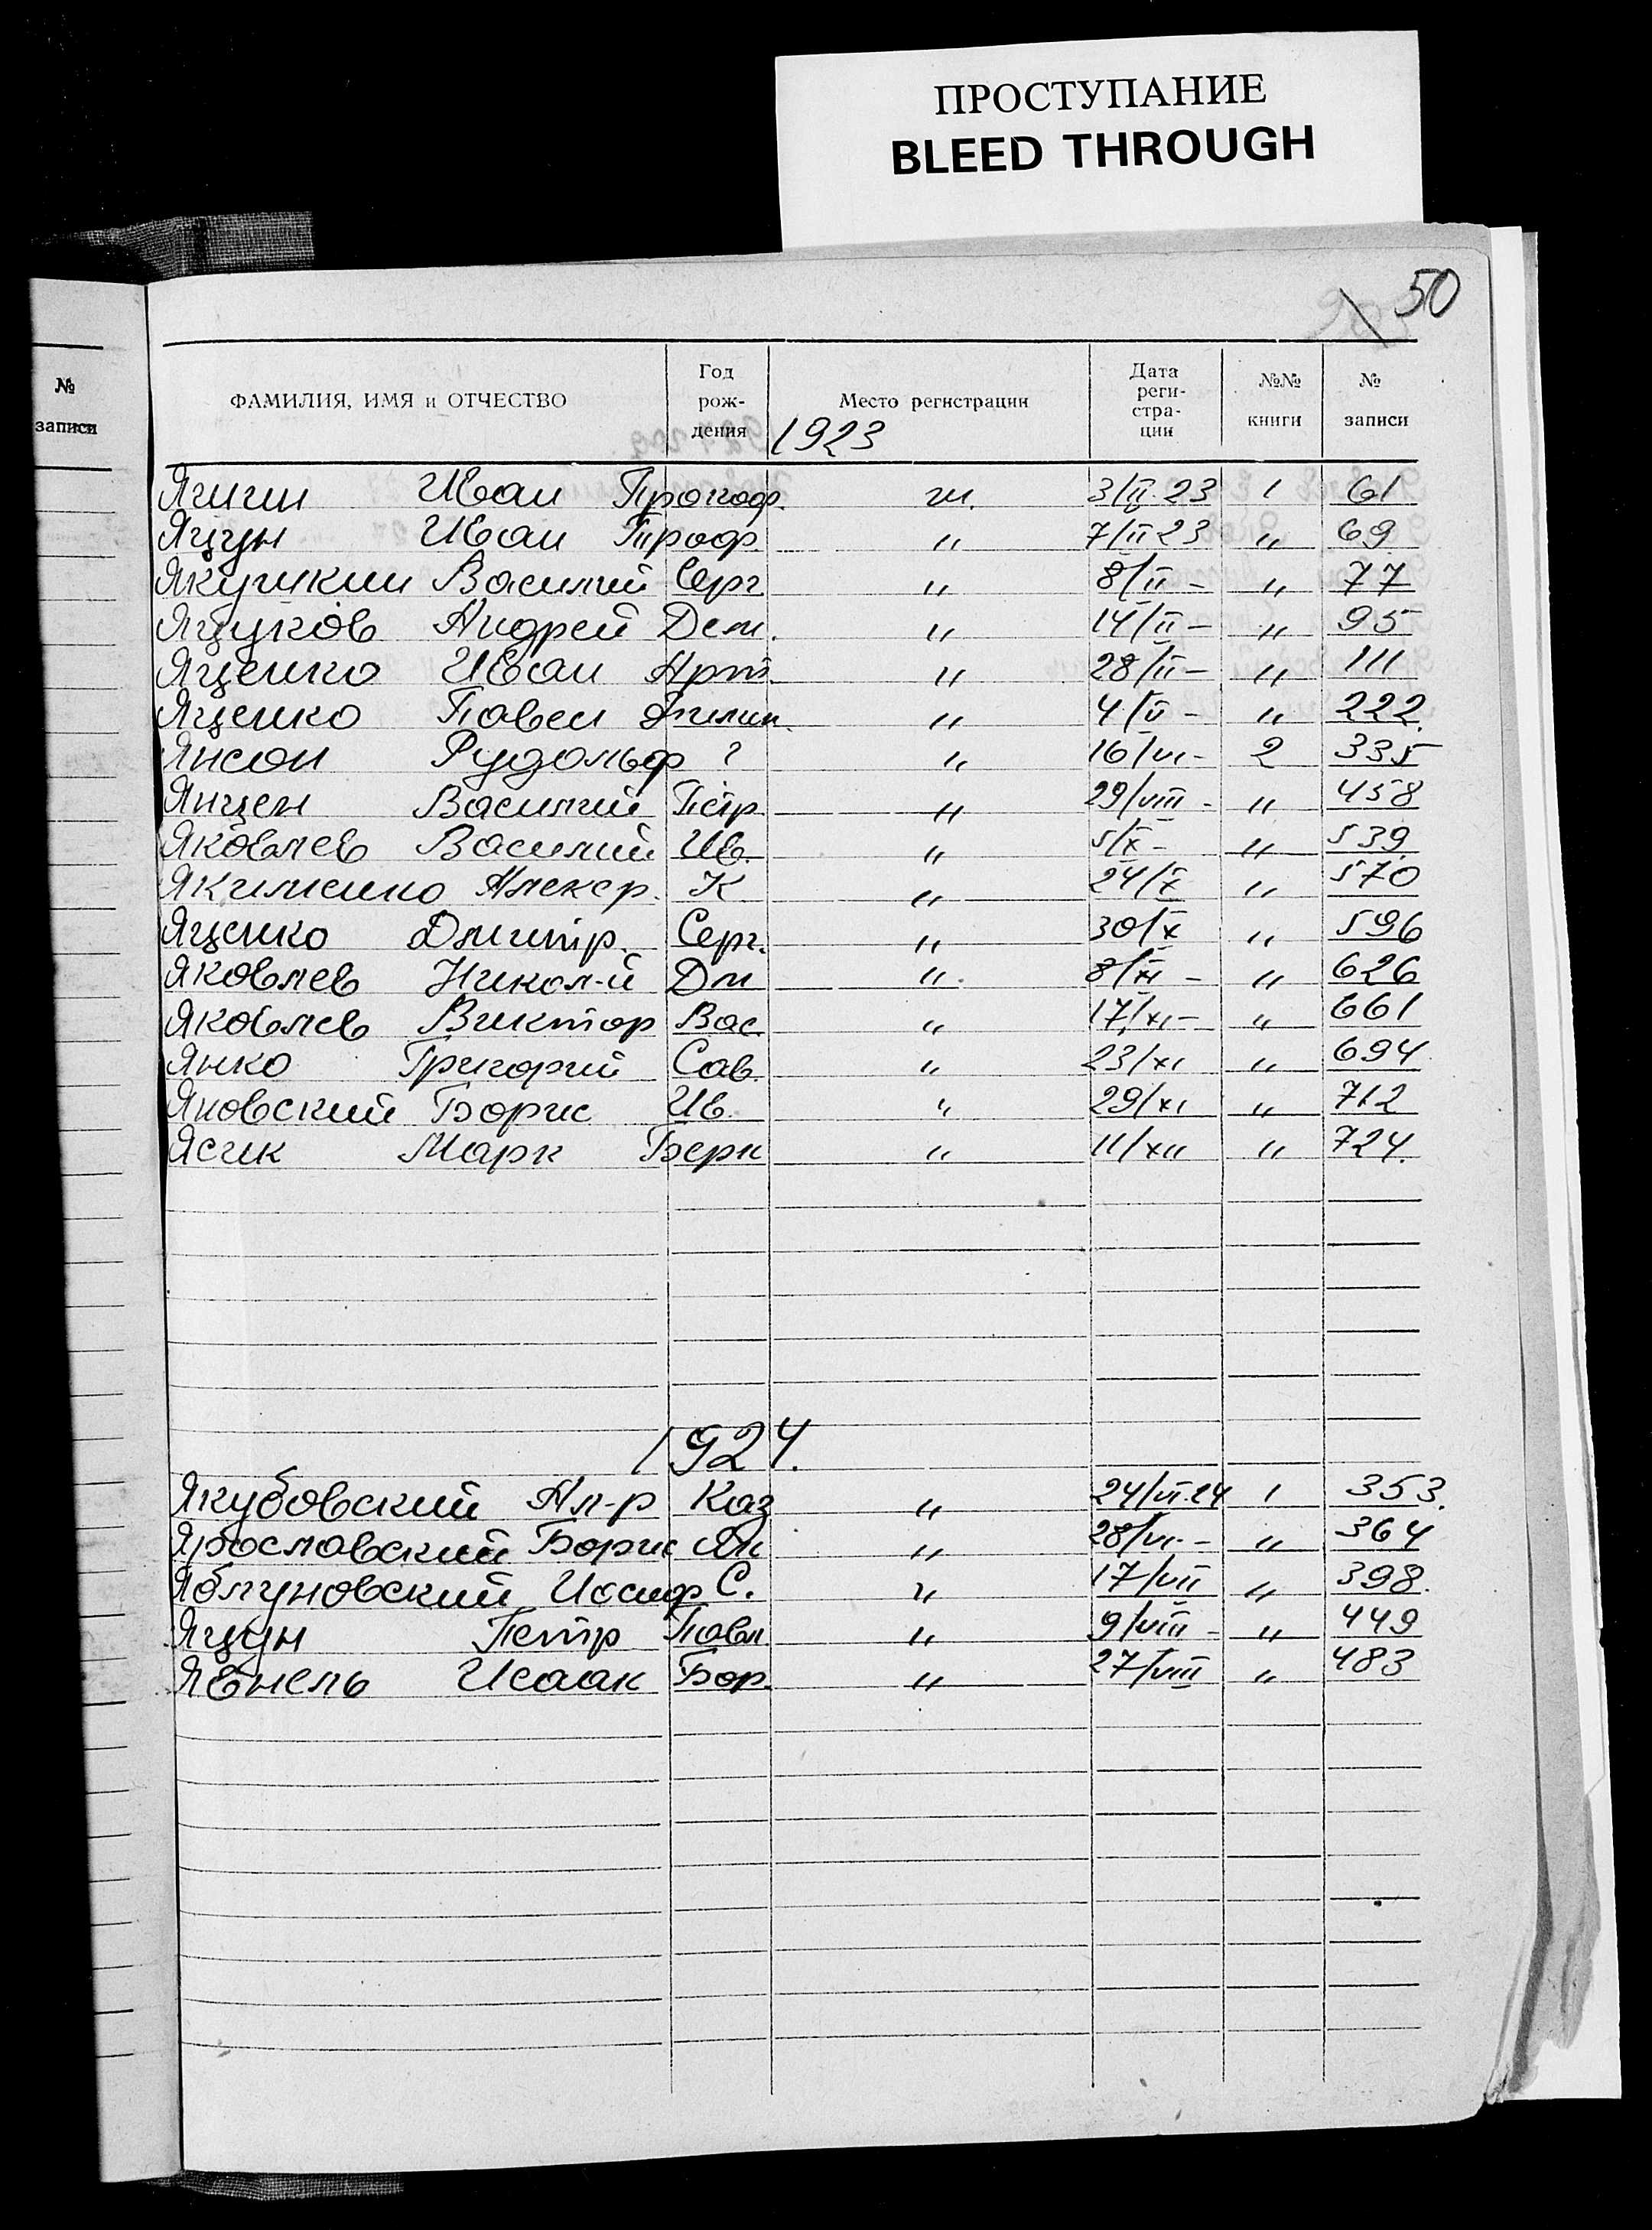 ПРОСТУПАНИЕ
BLEED THROUGH
50
№ записи
ФАМИЛИЯ, ИМЯ и ОТЧЕСТВО Год рождения Место регистрации Дата регистрации №№ книги № записи
1923
Ягигин Иван Прокоф. 3/II.23 1 61
Яцун Иван Троф. " 7/II 23 " 69
Василий Серг " 8/II - " 77
Яцуков Андрей Дем. " 14/II - " 95
Яценко Иван Арт. " 28/II - " 111
Яценко Павел Филип. " 4/V - " 222.
Янсон Рудольф ? " 16/VI - 2 335
Янцен Василий Петр " 29/VIII - " 458
Яковлев Василий Ив. " 5/X - " 539.
Якименко Алекср. К " 24/X " 570
Яценко Дмитр. Серг. " 30/X " 596
Яковлев Никол-й Дм " 8/XI - " 626
Яковлев Виктор Вас. " 17/XI - " 661
Янко Григорий Сав. " 23/XI " 694.
Яновский Борис Ив. " 29/XI " 712
Ясик Марк Берк " 11/XII " 724.
1924.
Якубовский Ал-р Каз " 24/VI.24 1 353.
Ярославский Борис Як " 28/VI. - " 364
Яблуновский Иосиф С. " 17/VII " 398.
Яцун Петр Павл " 9/VIII - " 449
Исаак Бор. " 27/VIII " 483